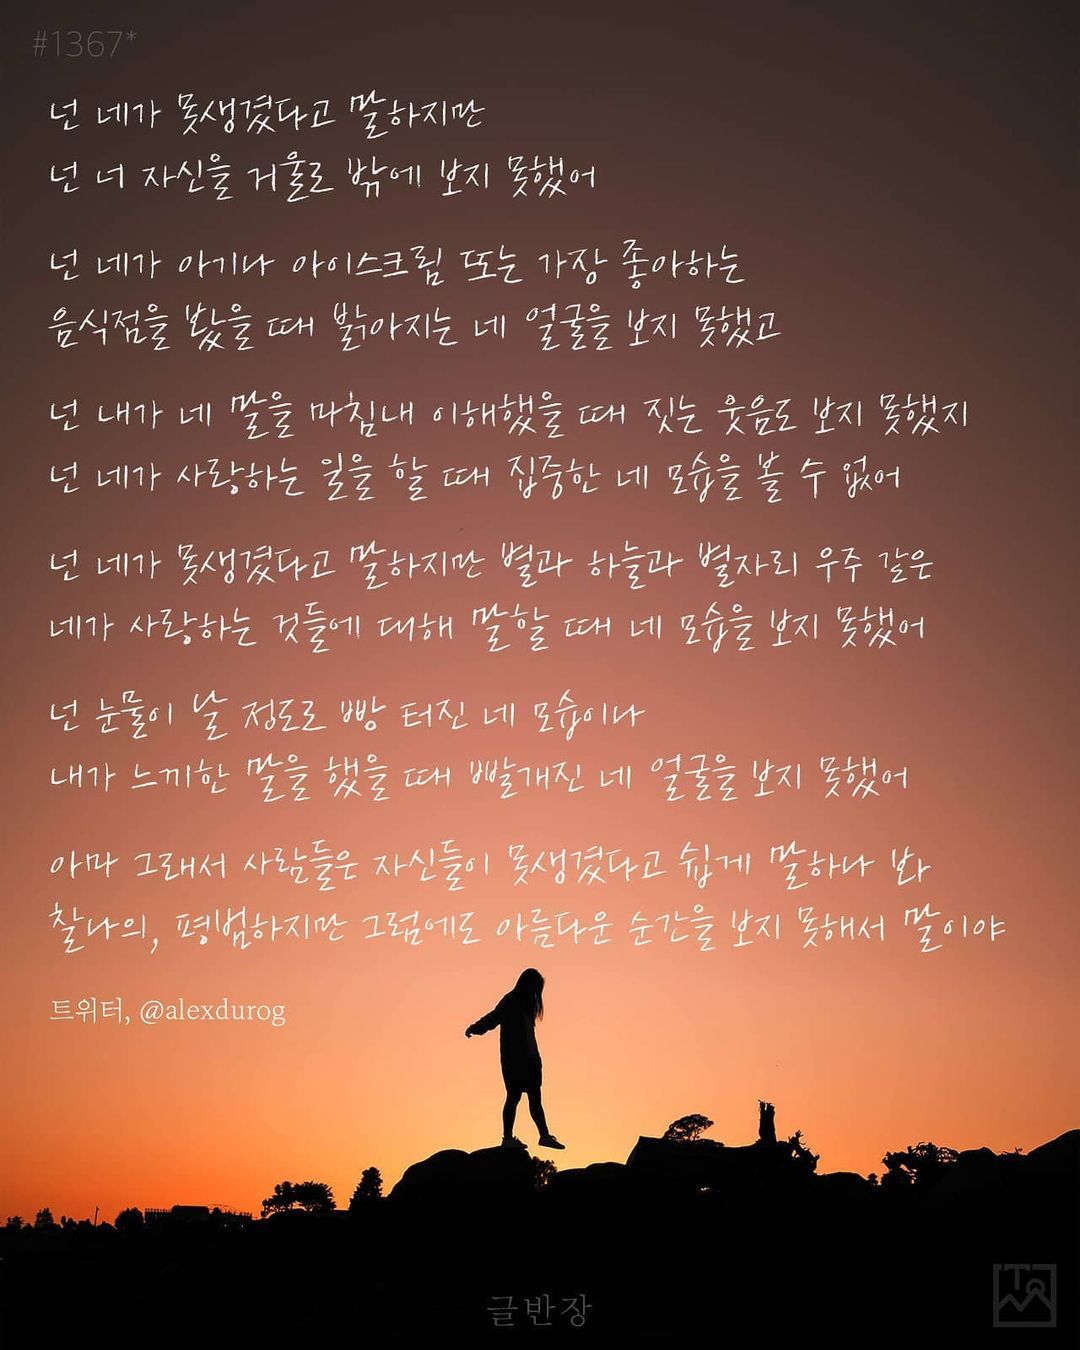 #1367*
넌 네가 못생겼다고 말하지만
넌 너 자신을 거울로 밖에 보지 못했어
넌 네가 아기나 아이스크림 또는 가장 좋아하는
음식점을 봤을 때 밝아지는 네 얼굴을 보지 못했고
넌 내가 네 말을 마침내 이해했을 때 짓는 웃음도 보지 못했지
넌 네가 사랑하는 일을 할 때 집중한 네 모습을 볼 수 없어
넌 네가 못생겼다고 말하지만 별과 하늘과 별자리 우주 같은
네가 사랑하는 것들에 대해 말할 때 네 모습을 보지 못했어
넌 눈물이 날 정도로 빵 터진 네 모습이나
내가 느끼한 말을 했을 때 빨개진 네 얼굴을 보지 못했어
아마 그래서 사람들은 자신들이 못생겼다고 쉽게 말하나 봐
찰나의, 평범하지만 그럼에도 아름다운 순간을 보지 못해서 말이야
트위터, @alexdurog
글반장